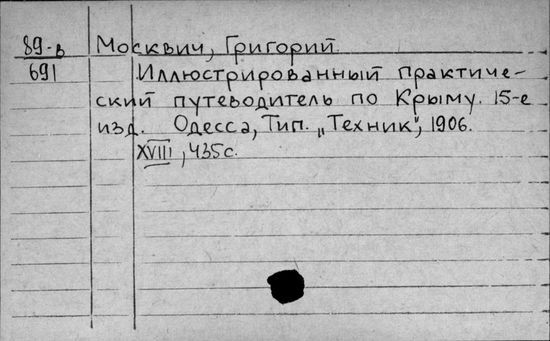 89-в Москвич, Григорий.
691 Иллюстрированный практиче-
ский путеводитель по Крыму. 15-е
изд. Одесса, Тип. „Техник", 1906.
XVIII, 435с.